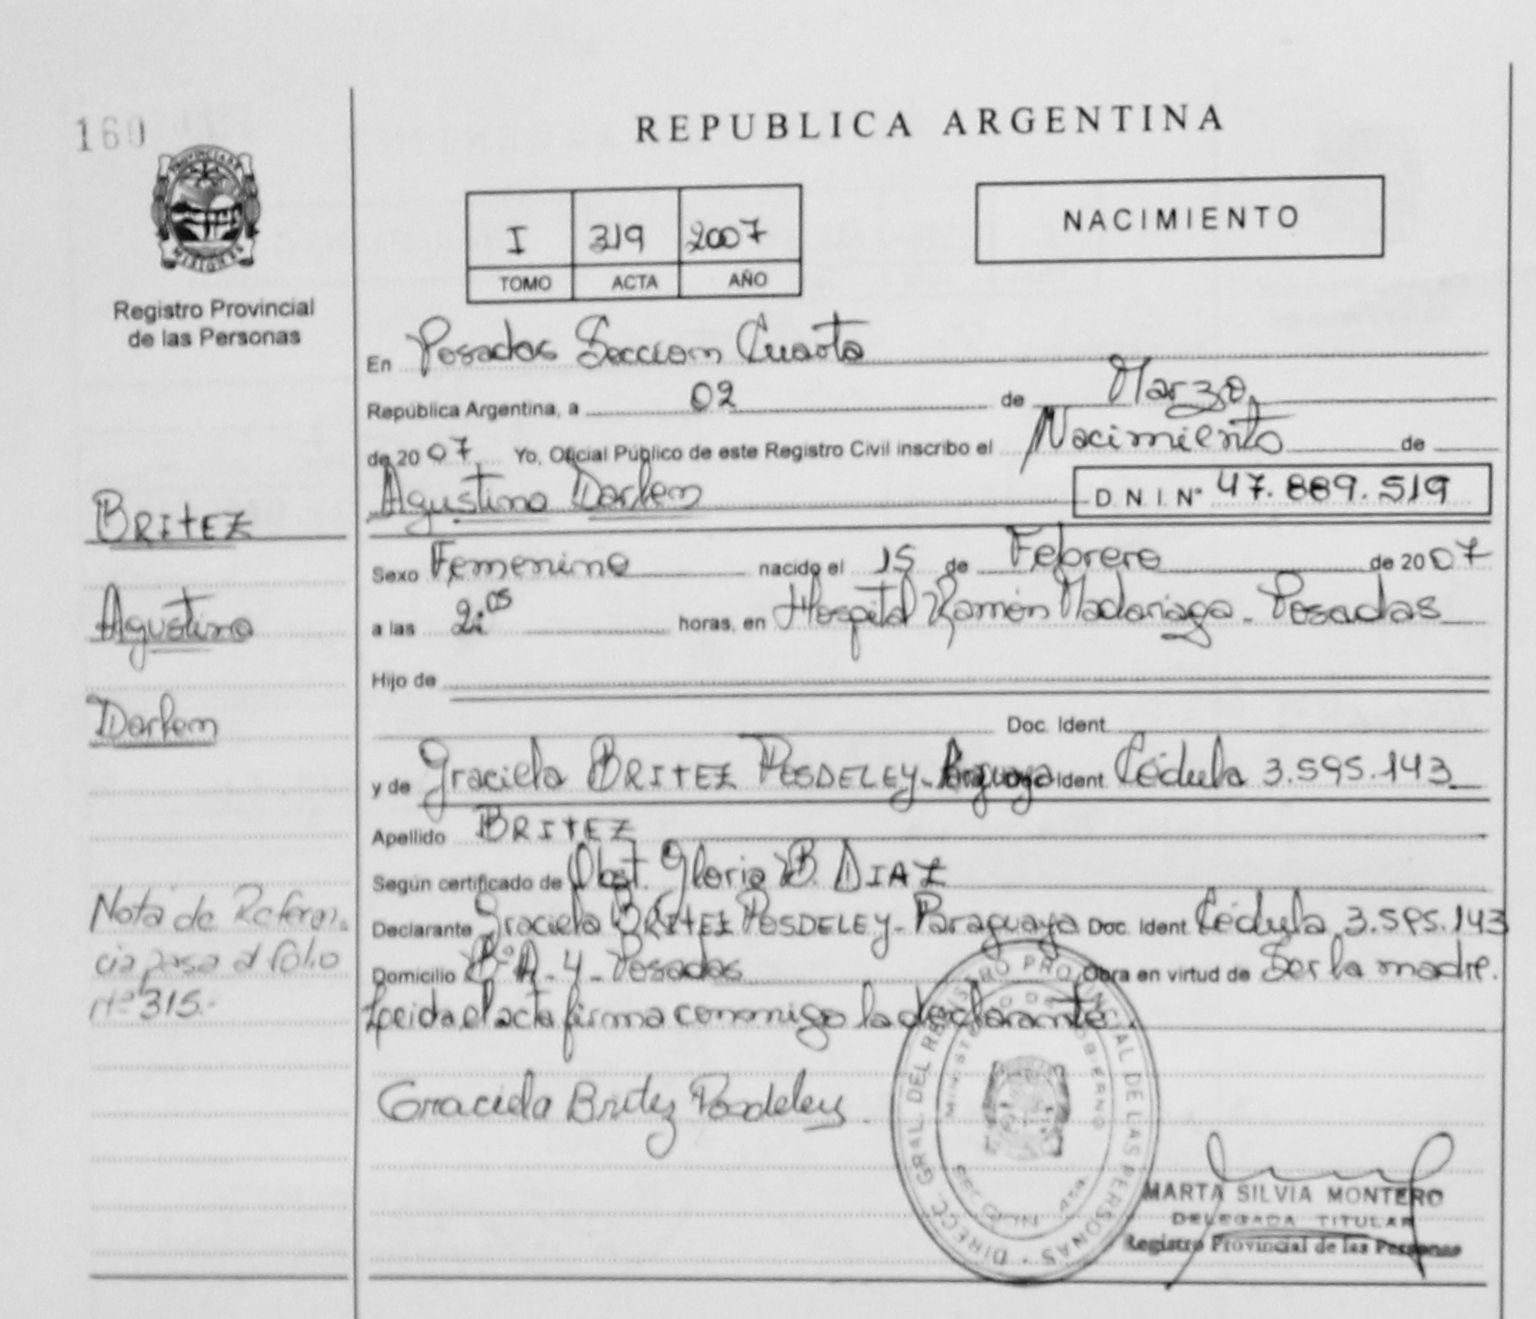 160
REPUBLICA ARGENTINA
PROVINCIA DE
MISIONES
Registro Provincial
de las Personas
I 319 2007
TOMO ACTA AÑO
NACIMIENTO
En Posadas Seccion Cuarta
República Argentina, a 02 de Marzo
de 2007 Yo, Oficial Público de este Registro Civil inscribo el Nacimiento de
Agustina Darlem D.N.I. N° 47.889.519
BRITEZ
Agustina
Darlem
Sexo Femenino nacido el 15 de Febrero de 2007
a las 2:05 horas, en Hospital Ramón Madariaga - Posadas
Hijo de
Doc. Ident.
y de Graciela BRITEZ POSDELEY - Paraguaya Doc. Ident. Cédula 3.595.143
Apellido BRITEZ
Según certificado de Obst. Gloria B. DIAZ
Declarante Graciela BRITEZ POSDELEY - Paraguaya Doc. Ident. Cédula 3.595.143
Domicilio B° A-4 - Posadas Obra en virtud de Ser la madre.
Leida el acta firma conmigo la declarante.
Nota de Referen-
cia pasa al folio
n° 315.-
Graciela Britez Posdeley
DIRECC. GRAL. DEL REGISTRO PROVINCIAL DE LAS PERSONAS
MINISTERIO DE GOBIERNO
MARTA SILVIA MONTERO
DELEGADA TITULAR
Registro Provincial de las Personas